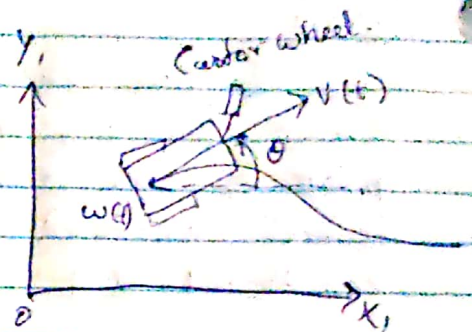 Y₁
Castor wheel.
V(t)
θ
ω(t)
O
X₁